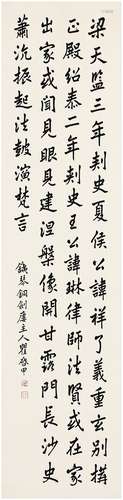 梁天監三年刺史夏侯公諱祥了義重玄別搆
正殿紹泰二年刺史王公諱琳律師法賢或在家
出家或聞見眼見建涅槃像開甘露門長沙史
蕭沇振起法鼓演梵言
鐵琴銅劍廬主人瞿啟甲